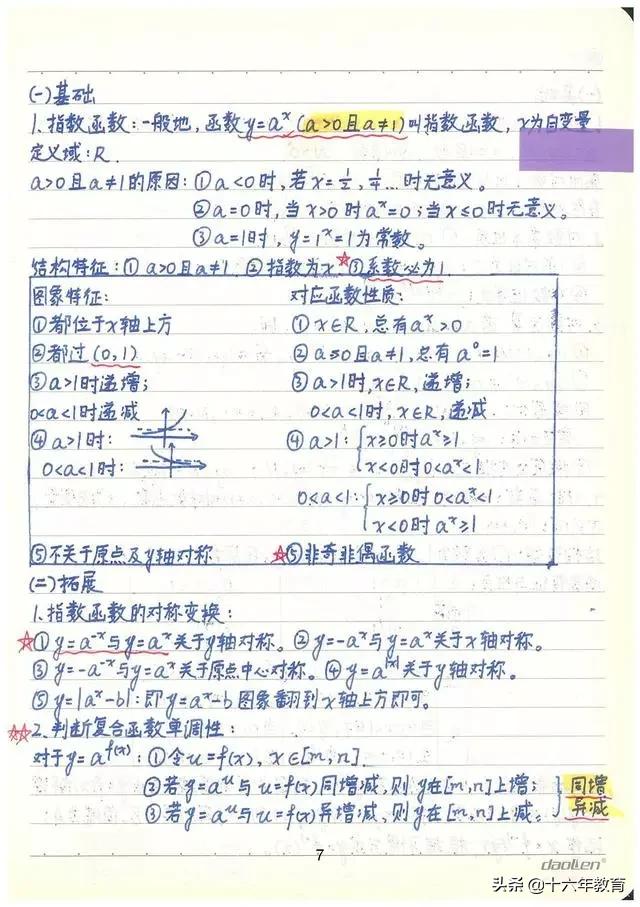 (一)基础
1.指数函数:一般地,函数y=aˣ(a>0且a≠1)叫指数函数,x为自变量
定义域:R.
a>0且a≠1的原因:①a<0时,若x=1/2,1/4…时无意义。
②a=0时,当x>0时aˣ=0;当x≤0时无意义。
③a=1时,y=1ˣ=1为常数。
结构特征:①a>0且a≠1.②指数为x.☆③系数必为1.
图象特征: 对应函数性质:
①都位于x轴上方 ①x∈R,总有aˣ>0
②都过(0,1) ②a≥0且a≠1,总有a⁰=1
③a>1时递增; ③a>1时,x∈R,递增;
0<a<1时递减 0<a<1时,x∈R,递减
④a>1时: ④a>1:{x≥0时aˣ≥1.
x<0时0<aˣ<1
0<a<1时:
0<a<1:{x≥0时0<aˣ<1
x<0时aˣ≥1
⑤不关于原点及y轴对称 ☆⑤非奇非偶函数
(二)拓展
1.指数函数的对称变换:
☆①y=a⁻ˣ与y=aˣ关于y轴对称。②y=-aˣ与y=aˣ关于x轴对称。
③y=-a⁻ˣ与y=aˣ关于原点中心对称。④y=a^|x|关于y轴对称。
⑤y=|aˣ-b|:即y=aˣ-b图象翻到x轴上方即可。
☆☆2.判断复合函数单调性:
对于y=a^f(x):①令u=f(x),x∈[m,n]
②若y=aᵘ与u=f(x)同增减,则y在[m,n]上增; 同增
③若y=aᵘ与u=f(x)异增减,则y在[m,n]上减。 异减
7
daolen®
头条@十六年教育